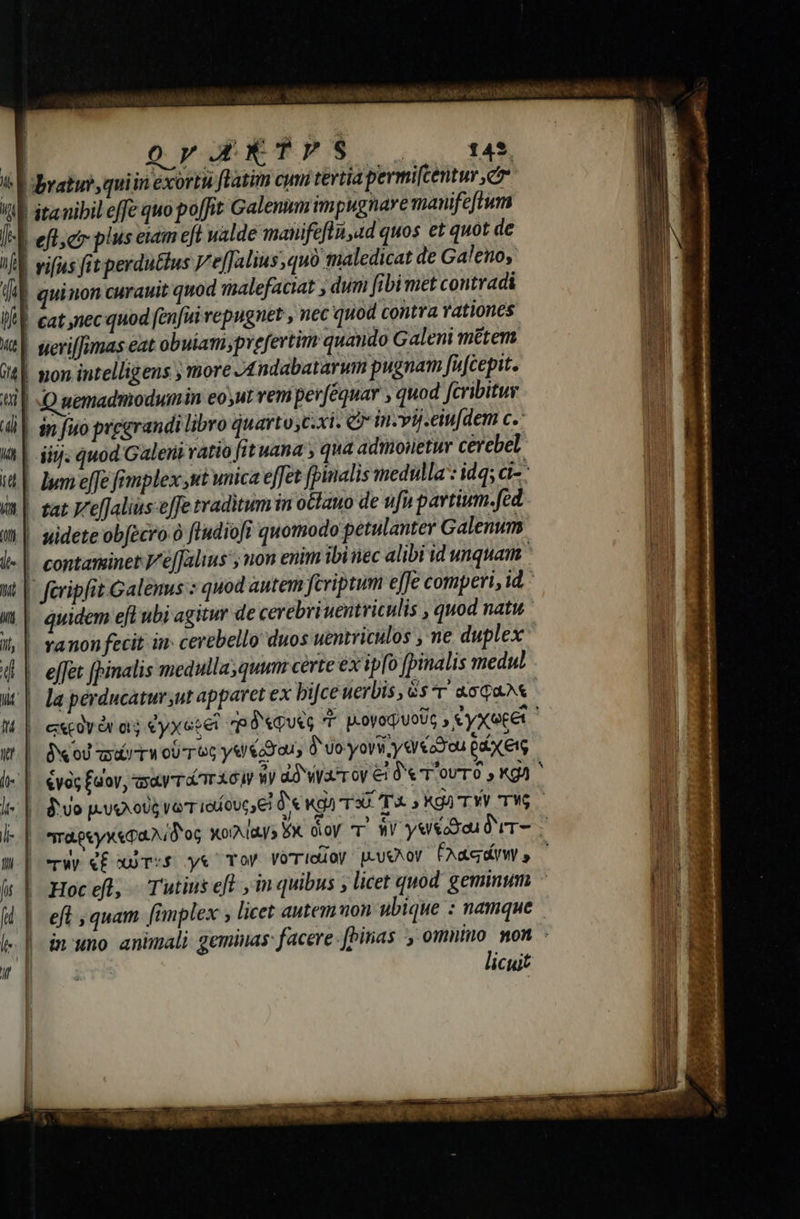 QVARTVS 143
bratur, qui in exortu ſtatim cum tertia permiſcentur, &
ita nihil eſſe quo poſſit Galenum impugnare manifeſtum
eſt, & plus etiam eſt ualde manifeſtū, ad quos et quot de
riſus ſit perductus Veſſalius, quò maledicat de Galeno,
qui non curauit quod malefaciat, dum ſibimet contradi
cat, nec quod ſenſui repugnet, nec quod contra rationes
ueriſſimas eat obuiam, preſertim quando Galeni mētem
non intelligens, more Andabatarum pugnam ſuſcepit.
Quemadmodum in eo, ut rem perſequar, quod ſcribitur
in ſuo pregrandi libro quarto, c. xi. & in. vij. eiuſdem c.
iiij. quod Galeni ratio ſit uana, qua admonetur cerebel
lum eſſe ſimplex, ut unica eſſet ſpinalis medulla: idq; ci-
tat Veſſalius eſſe traditum in octauo de uſu partium. ſed
uidete obſecro ò ſtudioſi quomodo petulanter Galenum
contaminet Veſſalius, non enim ibi nec alibi id unquam
ſcripſit Galenus: quod autem ſcriptum eſſe comperi, id
quidem eſt ubi agitur de cerebri uentriculis, quod natu
ra non fecit in cerebello duos uentriculos, ne duplex
eſſet ſpinalis medulla, quum certe ex ipſo ſpinalis medul
la perducatur, ut apparet ex hiſce uerbis, ὡς τ' ἀσφαλὲ
ἐγχωρεῖ
δύο γενέσθαι ῥάχεις
ἑνὸς ζῴον, ἀδύνατον εἰ δὲ τοῦτο, καὶ
δύο μυελοὺς νωτιαίους, εἰ δὲ καὶ
παρεγκεφαλίδος κοιλίαν, γενέσθαι διτ-
τὴν ἐξ γε τὸν νωτιαῖον μυελὸν
Hoc eſt, Tutius eſt, in quibus, licet quod geminum
eſt, quam ſimplex, licet autem non ubique: namque
in uno animali geminas facere ſpinas, omnino non
licuit